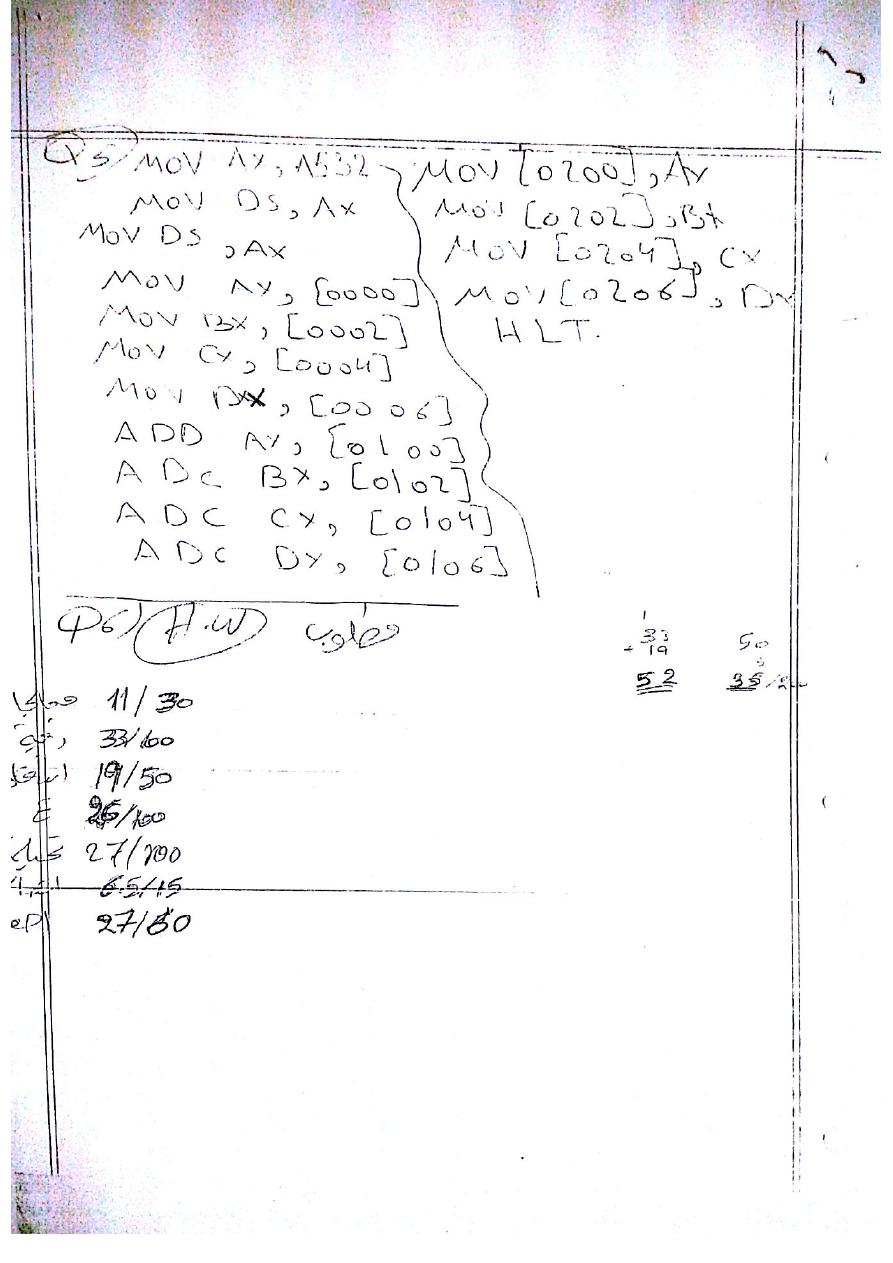 Q5) MOV AX, 1532
MOV DS, AX
MOV DS, AX
MOV AX, [0000]
MOV BX, [0002]
MOV CX, [0004]
MOV DX, [0006]
ADD AX, [0100]
ADC BX, [0102]
ADC CX, [0104]
ADC DX, [0106]
MOV [0200], AX
MOV [0202], BX
MOV [0204], CX
MOV [0206], DX
HLT.
Q6) H.W مطلوب
11/30
33/100
19/50
26/100
27/100
6.5/15
27/50
1
33
+ 19
52
50
35